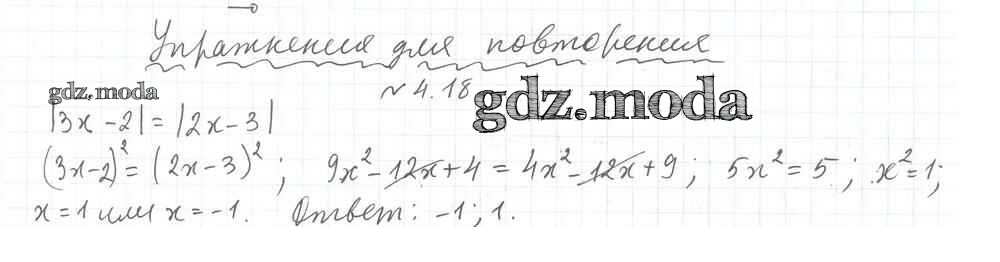 Упражнения для повторения
gdz.moda
№ 4.18
gdz.moda
|3x - 2| = |2x - 3|
(3x - 2)² = (2x - 3)²; 9x² - 12x + 4 = 4x² - 12x + 9; 5x² = 5; x² = 1;
x = 1 или x = -1. Ответ: -1; 1.